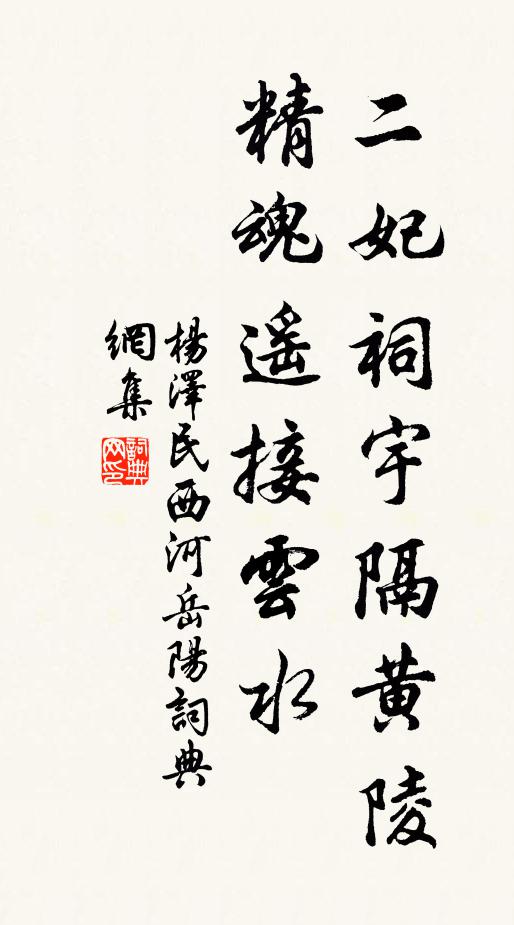 二妃祠宇隔黄陵
精魂遥接雲水
楊澤民西河岳陽詞典
網集
詞典
网印